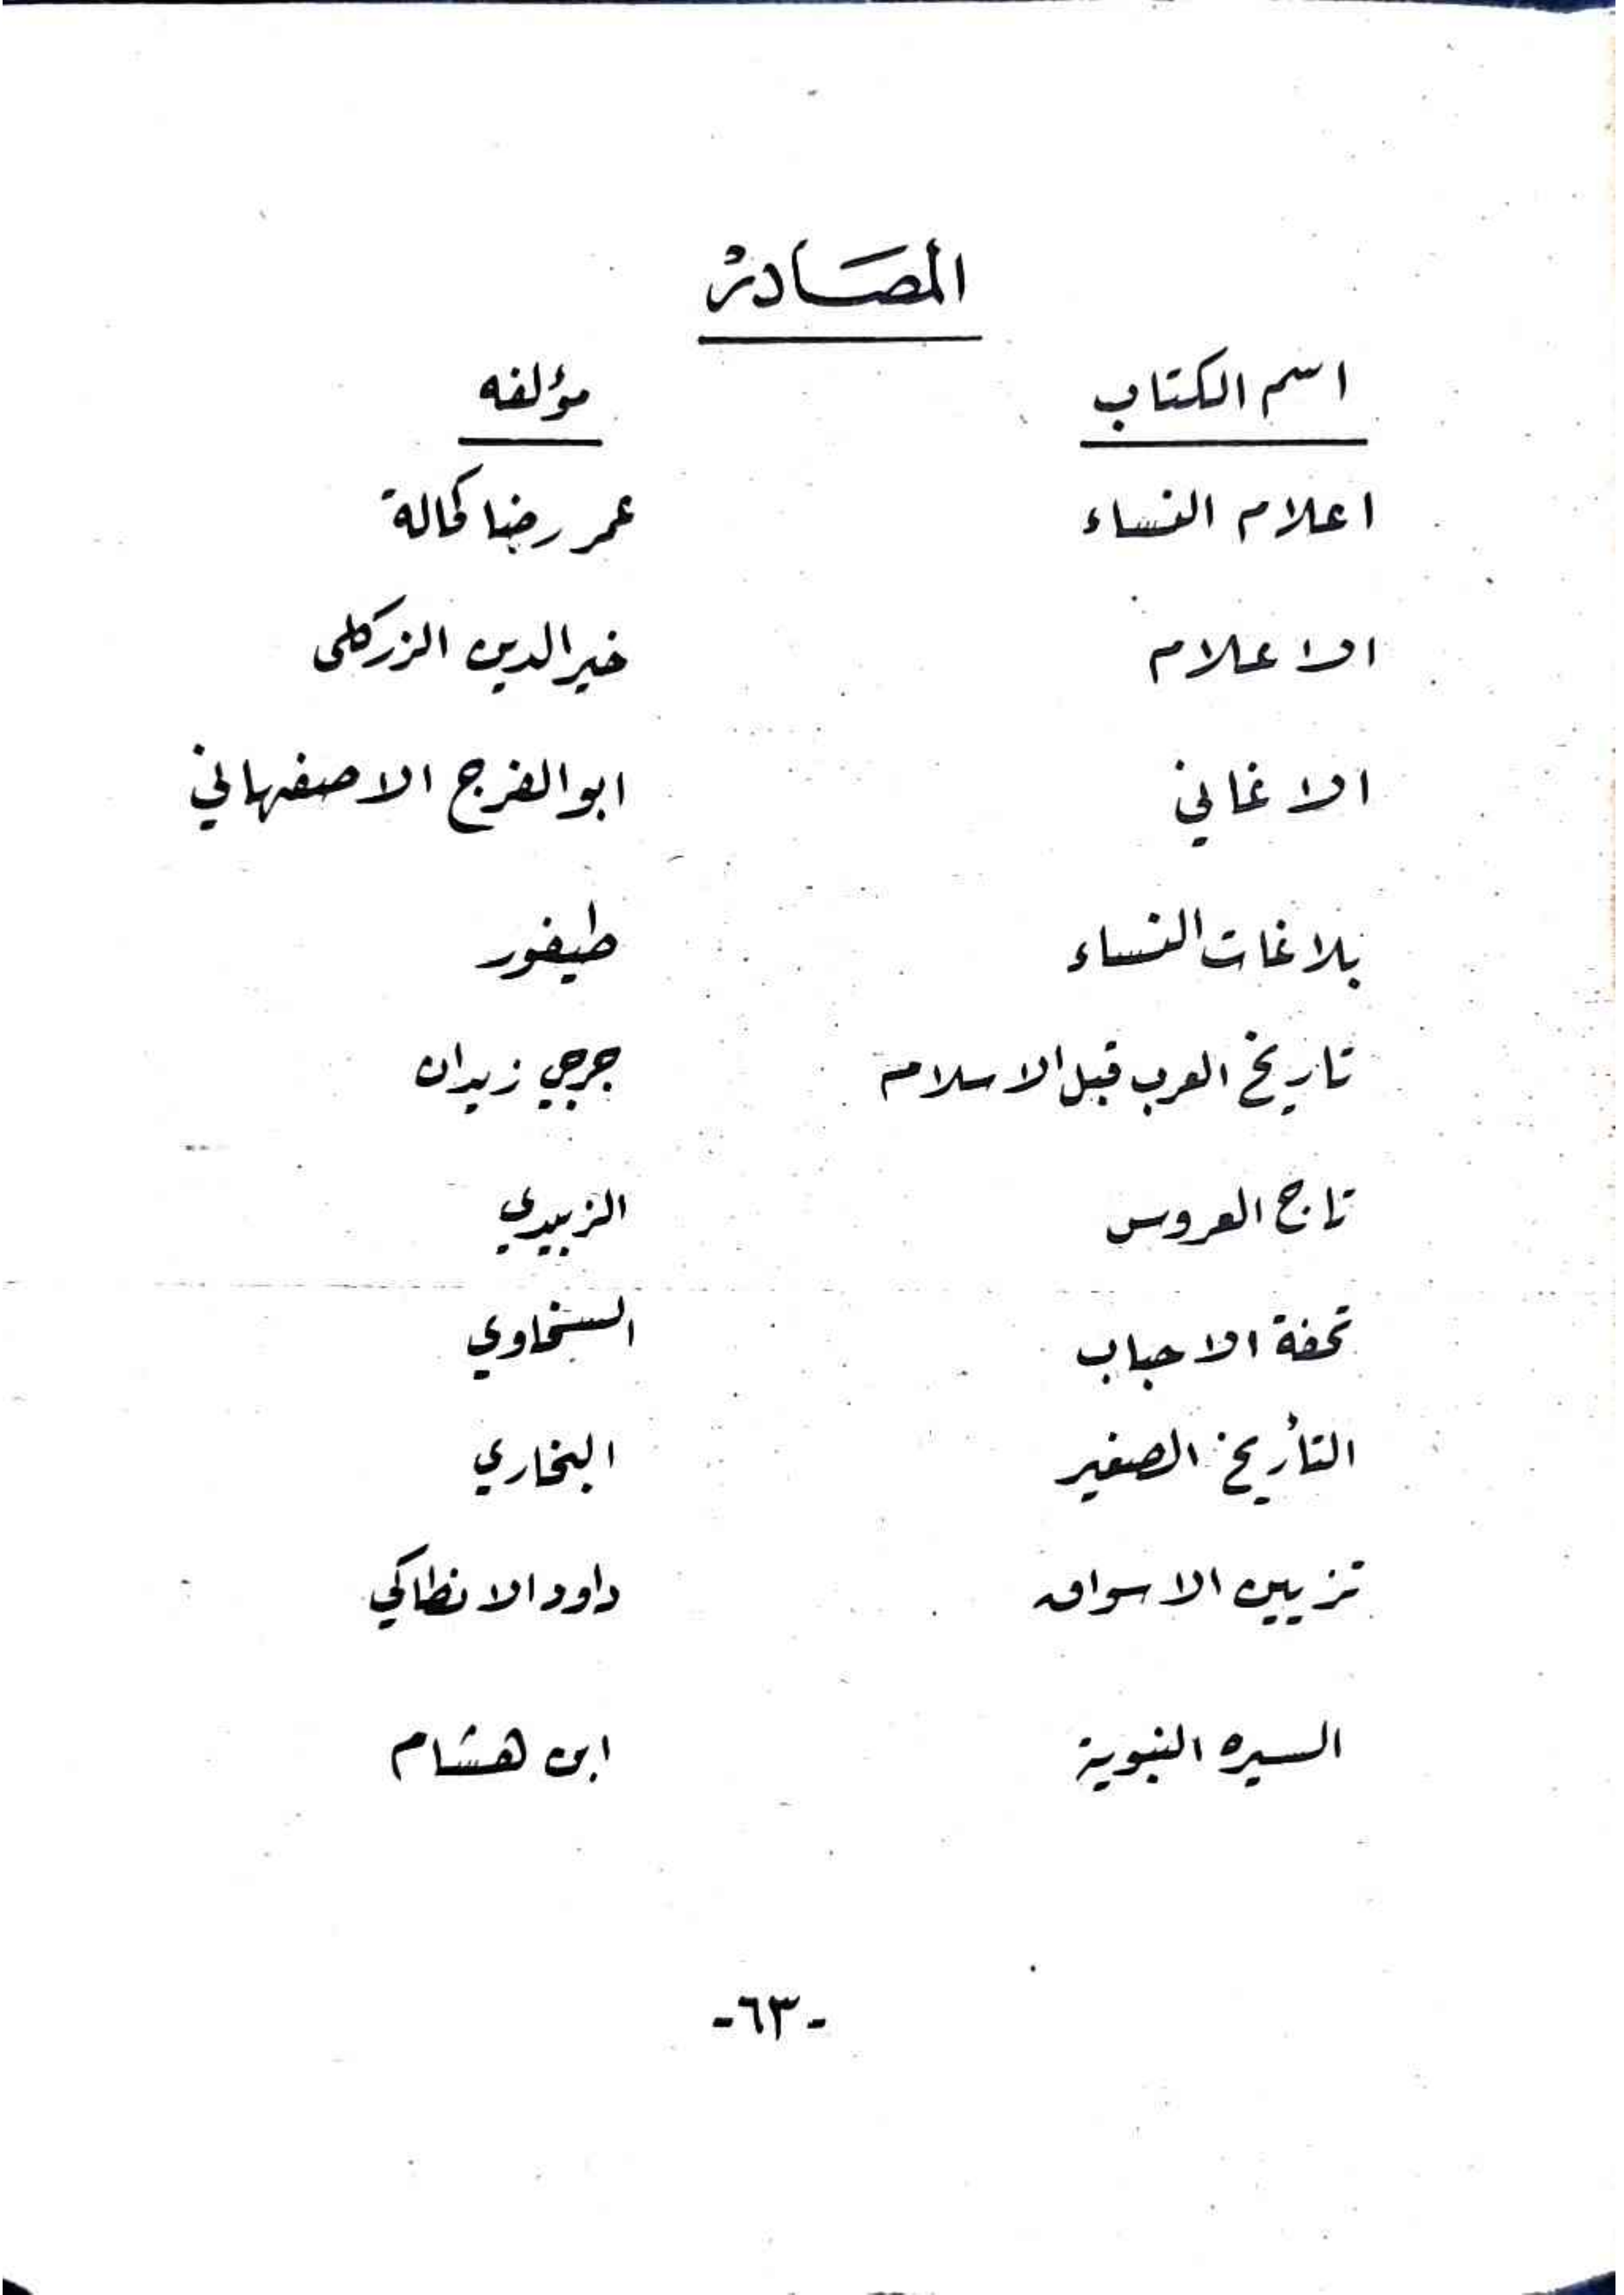 المصَادرْ
اسم الكتاب مؤلفه
اعلام النساء عمر رضا كحالة
الاعلام خير الدين الزركلى
الاغاني ابو الفرج الاصفهاني
بلاغات النساء طيفور
تاريخ العرب قبل الاسلام جرجي زيدان
تاج العروس الزبيدي
تحفة الاحباب السخاوي
التأريخ الصغير البخاري
تزيين الاسواق داود الانطاكي
السيره النبوية ابن هشام
-٦٣-